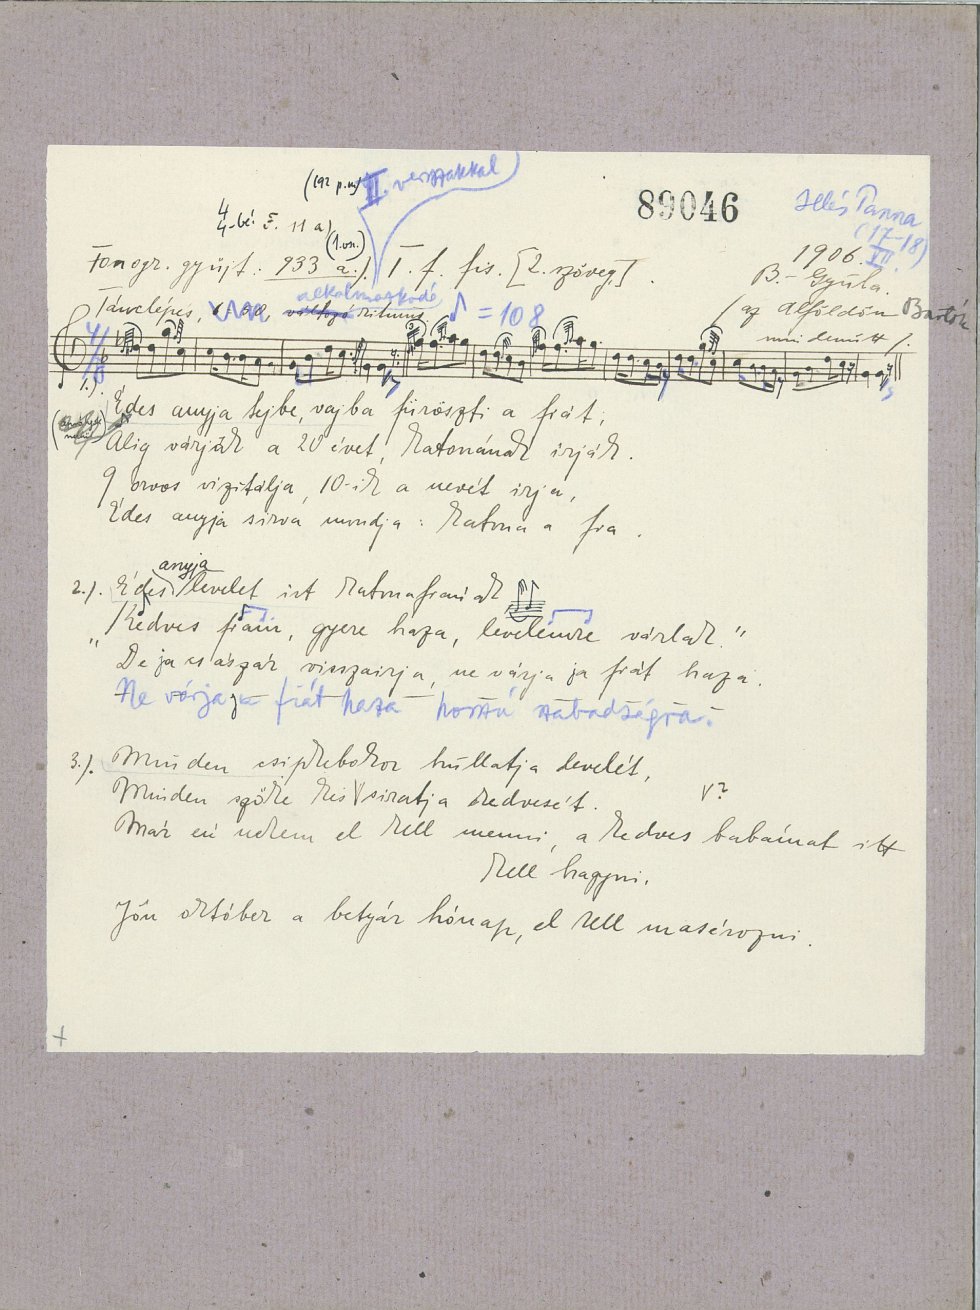 (192 p.u.) II. versszakkal
89046
Illés Panna
(17-18)
4
4-bé. F. 11 a)
(1.vsz.)
1906. VII.
Fonogr. gyűjt. 933 a.). I. f. fis. [2. szöveg].
B.-Gyula.
Tánclépés, alkalmazkodó ritmus ♪ = 108
(az Alföldön Bartók
mindenütt).
4/8
1.). Édes anyja tejbe, vajba füröszti a fiát,
Alig várják a 20 évet, katonának irják.
9 orvos vizitálja, 10-ik a nevét irja,
Édes anyja sirva mondja: katona a fia.
anyja
2.). Édes levelet irt katonafiának
"Kedves fiam, gyere haza, levelemre várlak."
De ja császár visszairja, ne várja ja fiát haza.
Ne várja ja fiát haza hosszú szabadságra.
3.). Minden csipkebokor hullatja levelét,
Minden szőke kis V siratja kedvesét. V?
Már én nekem el kell menni, a kedves babámat itt
kell hagyni,
Jön október a betyár hónap, el kell masérozni.
+